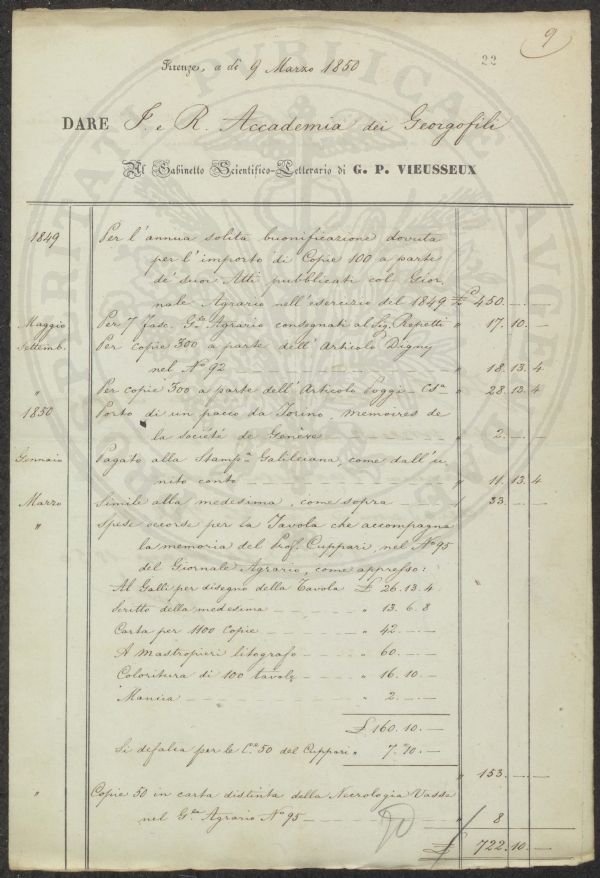 9
22
Firenze, a dì 9 Marzo 1850
DARE I. e R. Accademia dei Georgofili
Al Gabinetto Scientifico-Letterario di G. P. VIEUSSEUX
1849 Per l'annua solita buonificazione dovuta
per l'importo di Copie 100 a parte
de' suoi Atti pubblicati col Gior-
nale Agrario nell'esercizio del 1849 £ 450. — —
Maggio Per 7 fasc. Gle Agrario consegnati al Sig. Repetti " 17. 10. —
Settemb. Per copie 300 a parte dell'Articolo Digny
nel No 92 " 18. 13. 4
" Per copie 300 a parte dell'Articolo Poggi " 28. 13. 4
1850 Porto di un pacco da Torino, Memoires de
la société de Genève " 2. — —
Gennaio Pagato alla Stampa Galileiana, come dall'u-
nito conto " 11. 13. 4
Marzo Simile alla medesima, come sopra " 23. — —
" Spese occorse per la Tavola che accompagna
la memoria del Prof. Cuppari, nel No 95
del Giornale Agrario, come appresso:
Al Galli per disegno della Tavola £ 26. 13. 4
Scritto della medesima " 13. 6. 8
Carta per 1100 Copie " 42. — —
A Mastropieri litografo " 60. — —
Coloritura di 100 tavole " 16. 10. —
Mancia " 2. — —
£ 160. 10. —
Si defalca per le Cie 50 del Cuppari " 7. 10. —
" 153. — —
" Copie 50 in carta distinta della Necrologia Vasse
nel Gle Agrario No 95 " 8
£ 722. 10. —